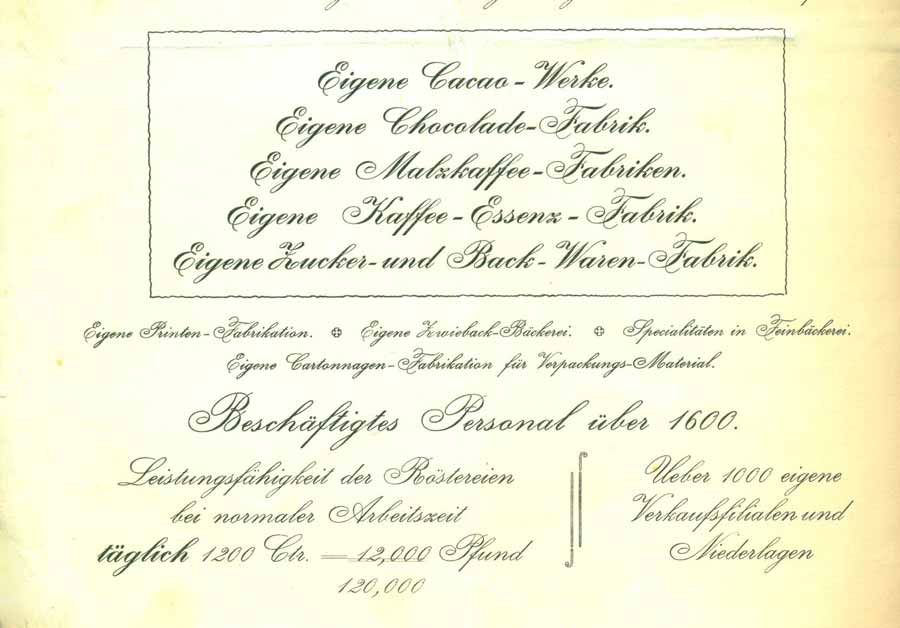 Eigene Cacao-Werke.
Eigene Chocolade-Fabrik.
Eigene Malzkaffee-Fabriken.
Eigene Kaffee-Essenz-Fabrik.
Eigene Zucker- und Back-Waren-Fabrik.
Eigene Printen-Fabrikation. Eigene Zwieback-Bäckerei. Specialitäten in Feinbäckerei.
Eigene Cartonnagen-Fabrikation für Verpackungs-Material.
Beschäftigtes Personal über 1600.
Leistungsfähigkeit der Röstereien
bei normaler Arbeitszeit
täglich 1200 Ctr. = 12,000 Pfund
120,000
Ueber 1000 eigene
Verkaufsfilialen und
Niederlagen